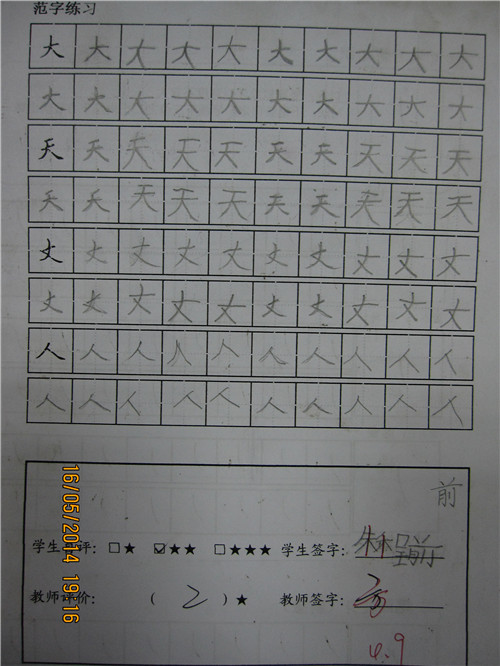 范字练习
大 大 大 大 大 大 大 大 大 大
大 大 大 大 大 大 大 大 大 大
天 天 天 天 天 天 天 天 天 天
天 天 天 天 天 天 天 天 天 天
丈 丈 丈 丈 丈 丈 丈 丈 丈 丈
丈 丈 丈 丈 丈 丈 丈 丈 丈 丈
人 人 人 人 人 人 人 人 人 人
人 人 人 人 人 人 人 人 人 人
前
学生自评: □★ ☑★★ □★★★ 学生签字: 朱程前
教师评价: ( 2 )★ 教师签字:
4.9
16/05/2014 19:16